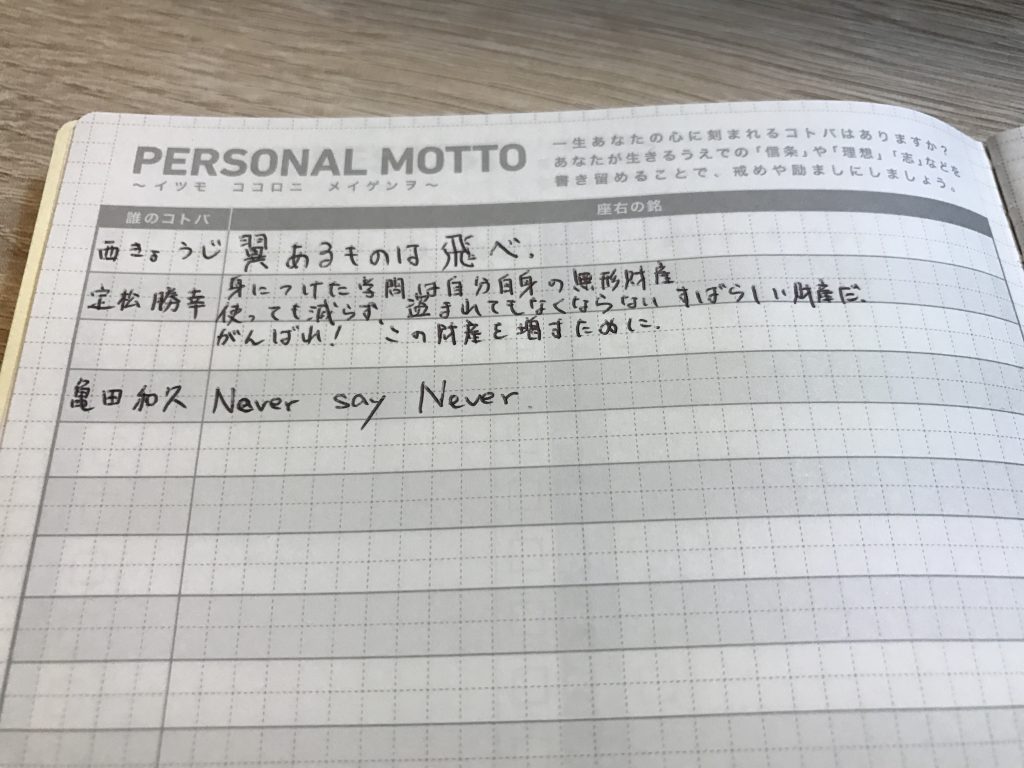 PERSONAL MOTTO
～イツモ ココロニ メイゲンヲ～
一生あなたの心に刻まれるコトバはありますか?
あなたが生きるうえでの「信条」や「理想」「志」などを
書き留めることで、戒めや励ましにしましょう。
誰のコトバ 座右の銘
西きょうじ 翼あるものは飛べ.
定松勝幸 身につけた学問は自分自身の無形財産
使っても減らず、盗まれてもなくならないすばらしい財産だ.
がんばれ! この財産を増すために.
亀田和久 Never say Never.